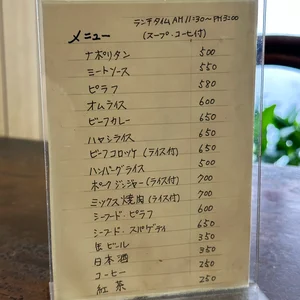 ランチタイム AM 11:30～PM3:00
(スープ・コーヒ付)
メニュー
ナポリタン 500
ミートソース 550
ピラフ 580
オムライス 600
ビーフカレー 650
ハヤシライス 650
ビーフコロッケ (ライス付) 650
ハンバーグライス 500
ポークジンジャー (ライス付) 700
ミックス焼肉 (ライス付) 700
シーフード ピラフ 600
シーフード スパゲティ 650
缶ビール 350
日本酒 350
コーヒー 250
紅茶 250